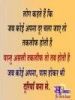 लोग कहते हैं कि
जब कोई अपना दूर चला जाए तो
तकलीफ होती है
परन्तु असली तकलीफ तो तब होती है
जब कोई अपना, पास होकर भी
दूरियाँ बना ले.